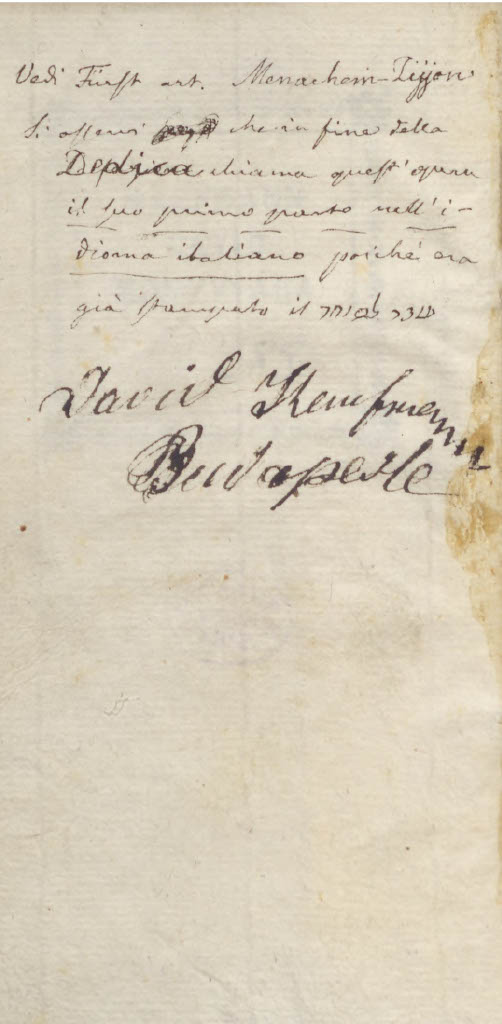 Vedi Fürst art. Menachem-Zijjon.
Si osservi che in fine della
Dedica chiama quest'opera
il suo primo parto nell'i-
dioma italiano poichè era
già stampato il
David Kaufmann
Budapeste